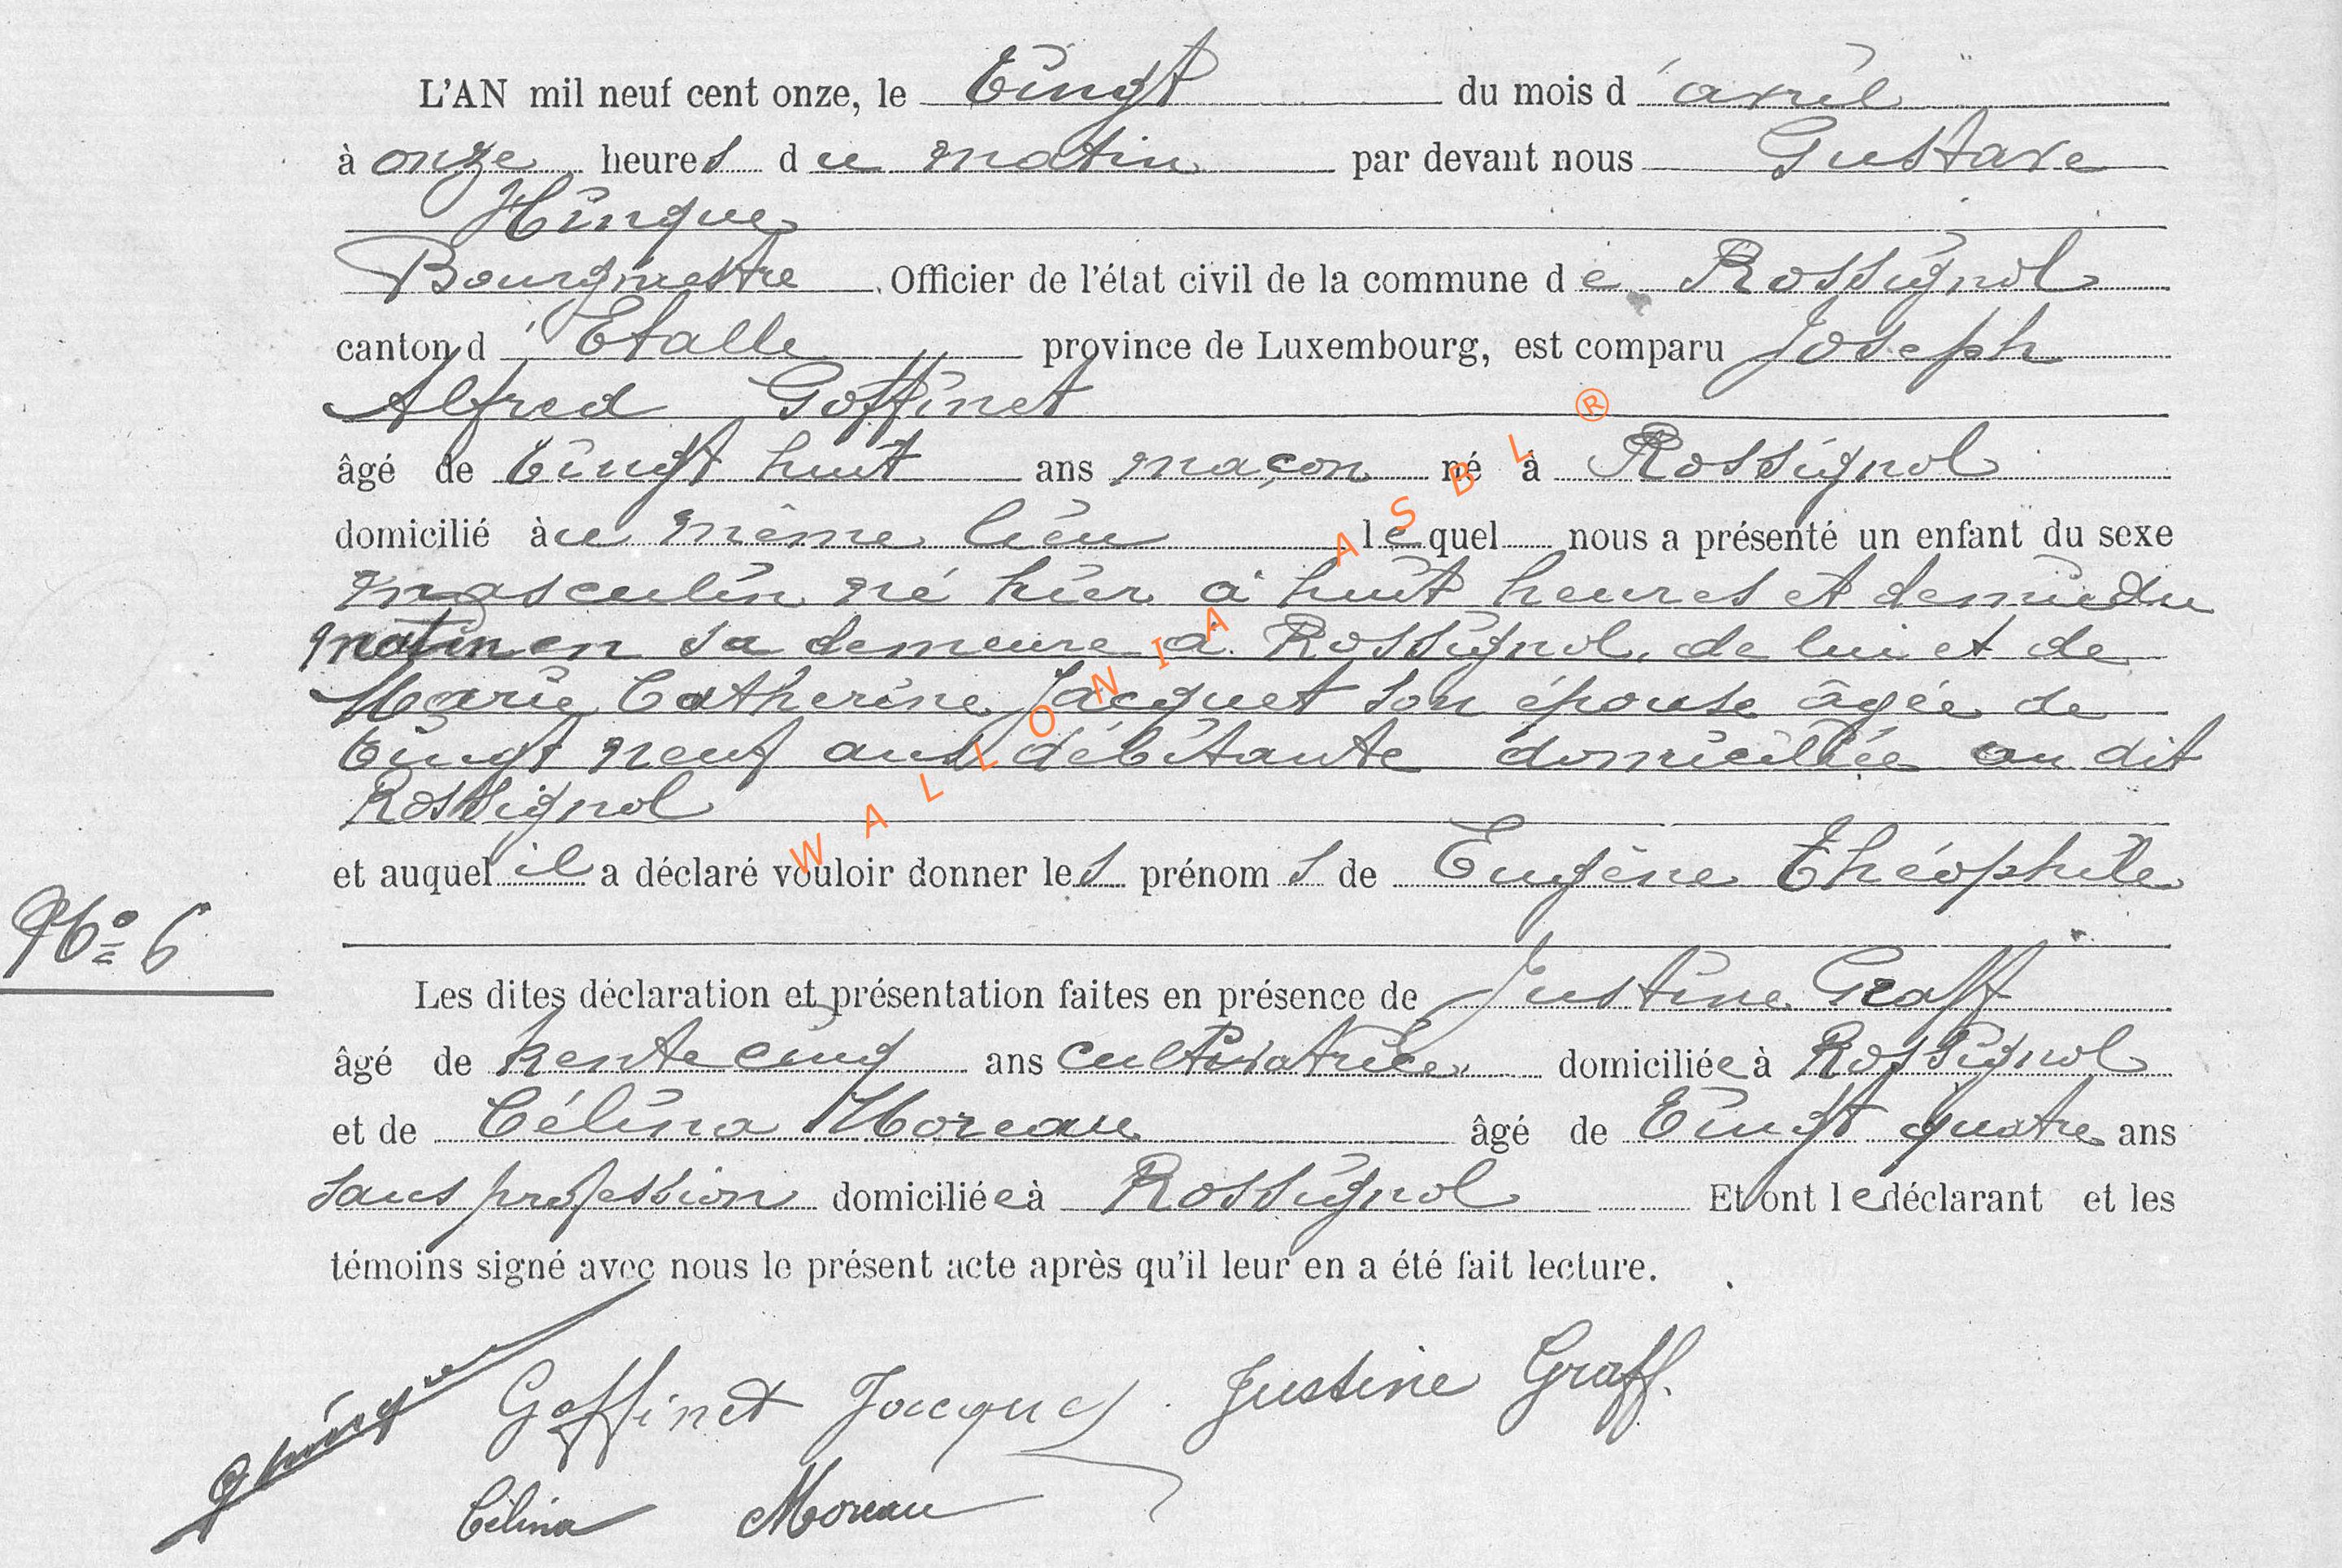 L'AN mil neuf cent onze, le Vingt du mois d'avril
à onze heures du matin par devant nous Gustave
Hinque
Bourgmestre Officier de l'état civil de la commune de Rossignol
canton d'Etalle province de Luxembourg, est comparu Joseph
Alfred Goffinet
âgé de Vingt huit ans maçon né à Rossignol
domicilié àu même lieu lequel nous a présenté un enfant du sexe
masculin né hier à huit heures et demie du
matin en sa demeure à Rossignol, de lui et de
Marie Catherine Jacquet son épouse âgée de
Vingt neuf ans débitante domiciliée au dit
Rossignol
et auquel il a déclaré vouloir donner les prénoms de Eugène Théophile
No 6
Les dites déclaration et présentation faites en présence de Justine Graff
âgé de trente cinq ans cultivatrice domiciliée à Rossignol
et de Célina Moreau âgé de Vingt quatre ans
sans profession domiciliée à Rossignol Et ont le déclarant et les
témoins signé avec nous le présent acte après qu'il leur en a été fait lecture.
Goffinet Jacques Justine Graff.
Célina Moreau
WALLONIA ASBL ®